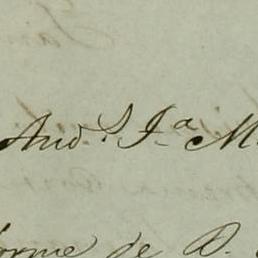 And.s J.a M
forme de D.